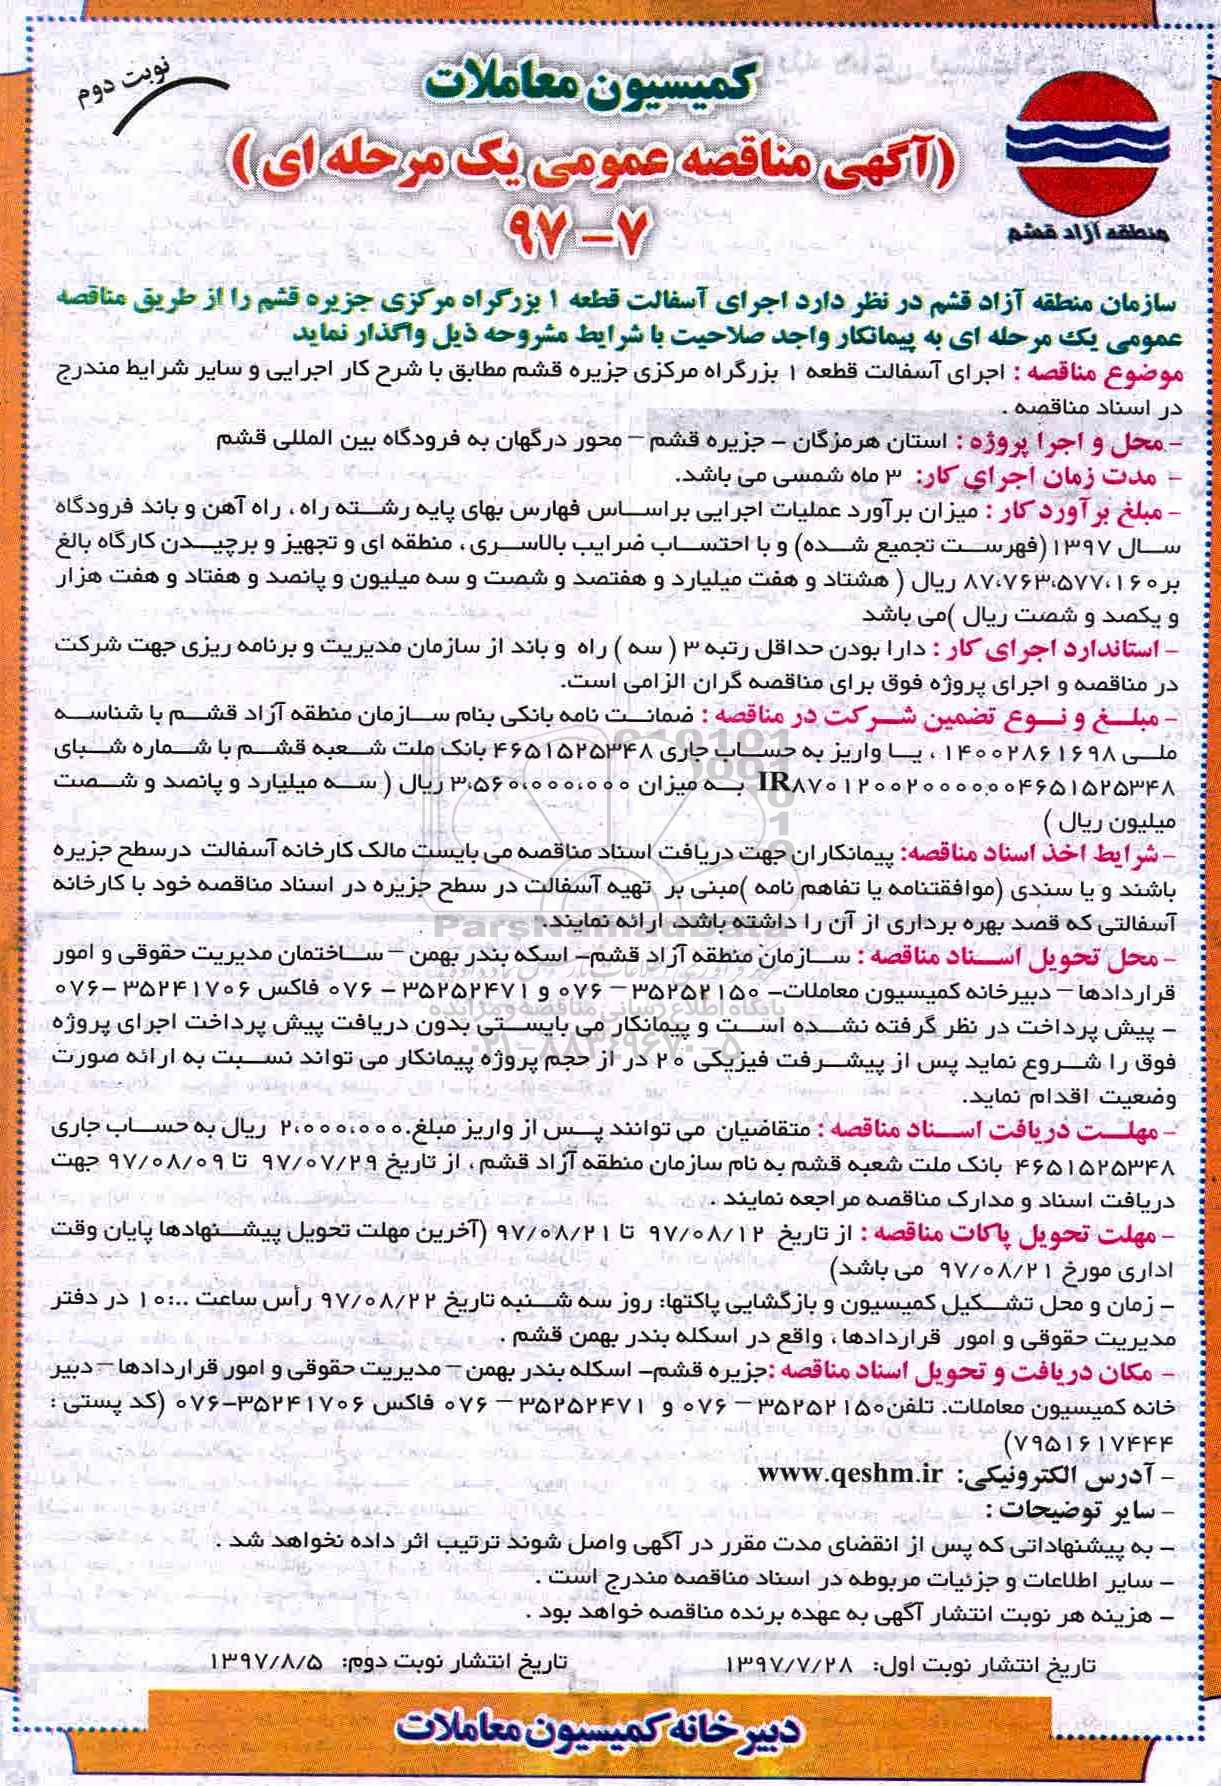 نوبت دوم
کمیسیون معاملات
(آگهی مناقصه عمومی یک مرحله ای)
۷ - ۹۷
منطقه آزاد قشم
سازمان منطقه آزاد قشم در نظر دارد اجرای آسفالت قطعه ۱ بزرگراه مرکزی جزیره قشم را از طریق مناقصه
عمومی یک مرحله ای به پیمانکار واجد صلاحیت با شرایط مشروحه ذیل واگذار نماید
موضوع مناقصه : اجرای آسفالت قطعه ۱ بزرگراه مرکزی جزیره قشم مطابق با شرح کار اجرایی و سایر شرایط مندرج
در اسناد مناقصه .
- محل و اجرا پروژه : استان هرمزگان - جزیره قشم – محور درگهان به فرودگاه بین المللی قشم
- مدت زمان اجرای کار: ۳ ماه شمسی می باشد.
- مبلغ برآورد کار : میزان برآورد عملیات اجرایی براساس فهارس بهای پایه رشته راه ، راه آهن و باند فرودگاه
سال ۱۳۹۷ (فهرست تجمیع شده) و با احتساب ضرایب بالاسری ، منطقه ای و تجهیز و برچیدن کارگاه بالغ
بر ۸۷،۷۶۳،۵۷۷،۱۶۰ ریال ( هشتاد و هفت میلیارد و هفتصد و شصت و سه میلیون و پانصد و هفتاد و هفت هزار
و یکصد و شصت ریال )می باشد
- استاندارد اجرای کار : دارا بودن حداقل رتبه ۳ ( سه ) راه و باند از سازمان مدیریت و برنامه ریزی جهت شرکت
در مناقصه و اجرای پروژه فوق برای مناقصه گران الزامی است.
- مبلغ و نوع تضمین شرکت در مناقصه : ضمانت نامه بانکی بنام سازمان منطقه آزاد قشم با شناسه
ملی ۱۴۰۰۲۸۶۱۶۹۸ ، یا واریز به حساب جاری ۴۶۵۱۵۲۵۳۴۸ بانک ملت شعبه قشم با شماره شبای
IR۸۷۰۱۲۰۰۲۰۰۰۰۰۰۰۴۶۵۱۵۲۵۳۴۸ به میزان ۳،۵۶۰،۰۰۰،۰۰۰ ریال ( سه میلیارد و پانصد و شصت
میلیون ریال )
- شرایط اخذ اسناد مناقصه: پیمانکاران جهت دریافت اسناد مناقصه می بایست مالک کارخانه آسفالت درسطح جزیره
باشند و یا سندی (موافقتنامه یا تفاهم نامه )مبنی بر تهیه آسفالت در سطح جزیره در اسناد مناقصه خود با کارخانه
آسفالتی که قصد بهره برداری از آن را داشته باشد، ارائه نمایند.
- محل تحویل اسناد مناقصه : سازمان منطقه آزاد قشم- اسکه بندر بهمن – ساختمان مدیریت حقوقی و امور
قراردادها – دبیرخانه کمیسیون معاملات- ۳۵۲۵۲۱۵۰ – ۰۷۶ و ۳۵۲۵۲۴۷۱ - ۰۷۶ فاکس ۳۵۲۴۱۷۰۶ -۰۷۶
- پیش پرداخت در نظر گرفته نشده است و پیمانکار می بایستی بدون دریافت پیش پرداخت اجرای پروژه
فوق را شروع نماید پس از پیشرفت فیزیکی ۲۰ در از حجم پروژه پیمانکار می تواند نسبت به ارائه صورت
وضعیت اقدام نماید.
- مهلت دریافت اسناد مناقصه : متقاضیان می توانند پس از واریز مبلغ ۲،۰۰۰،۰۰۰ ریال به حساب جاری
۴۶۵۱۵۲۵۳۴۸ بانک ملت شعبه قشم به نام سازمان منطقه آزاد قشم ، از تاریخ ۹۷/۰۷/۲۹ تا ۹۷/۰۸/۰۹ جهت
دریافت اسناد و مدارک مناقصه مراجعه نمایند .
- مهلت تحویل پاکات مناقصه : از تاریخ ۹۷/۰۸/۱۲ تا ۹۷/۰۸/۲۱ (آخرین مهلت تحویل پیشنهادها پایان وقت
اداری مورخ ۹۷/۰۸/۲۱ می باشد)
- زمان و محل تشکیل کمیسیون و بازگشایی پاکتها: روز سه شنبه تاریخ ۹۷/۰۸/۲۲ رأس ساعت ۱۰:۰۰ در دفتر
مدیریت حقوقی و امور قراردادها ، واقع در اسکله بندر بهمن قشم .
- مکان دریافت و تحویل اسناد مناقصه :جزیره قشم- اسکله بندر بهمن – مدیریت حقوقی و امور قراردادها – دبیر
خانه کمیسیون معاملات. تلفن۳۵۲۵۲۱۵۰ – ۰۷۶ و ۳۵۲۵۲۴۷۱ – ۰۷۶ فاکس ۳۵۲۴۱۷۰۶-۰۷۶ (کد پستی :
۷۹۵۱۶۱۷۴۴۴)
- آدرس الکترونیکی: www.qeshm.ir
- سایر توضیحات :
- به پیشنهاداتی که پس از انقضای مدت مقرر در آگهی واصل شوند ترتیب اثر داده نخواهد شد .
- سایر اطلاعات و جزئیات مربوطه در اسناد مناقصه مندرج است .
- هزینه هر نوبت انتشار آگهی به عهده برنده مناقصه خواهد بود .
تاریخ انتشار نوبت اول: ۱۳۹۷/۷/۲۸ تاریخ انتشار نوبت دوم: ۱۳۹۷/۸/۵
دبیرخانه کمیسیون معاملات
پایگاه اطلاع رسانی مناقصه و مزایده
۰۲۱-۸۸۳۴۹۶۷۰-۵